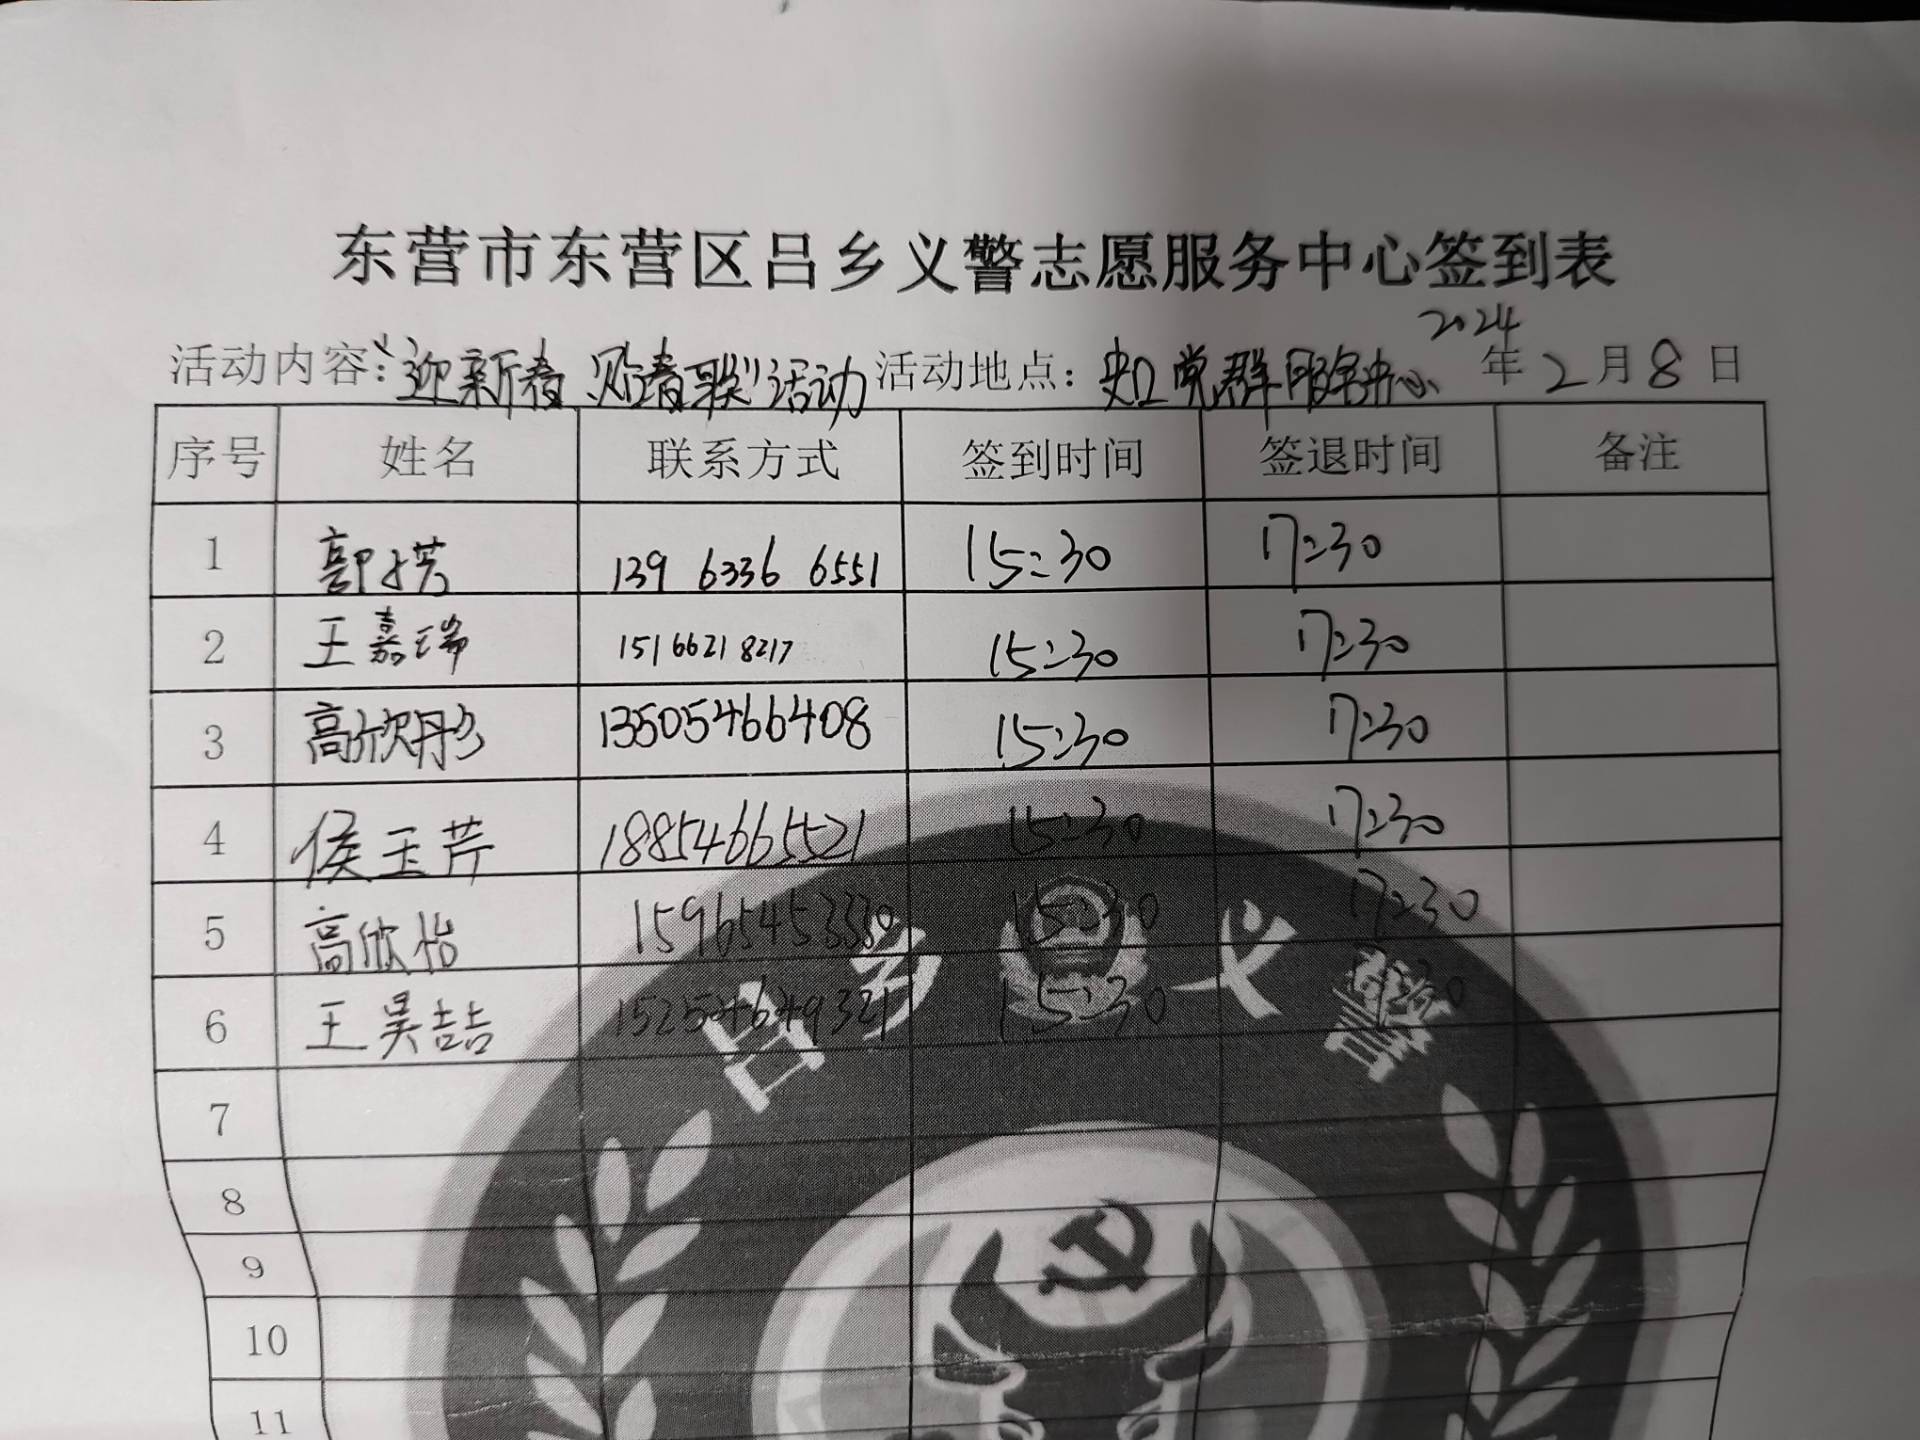 东营市东营区吕乡义警志愿服务中心签到表
活动内容:"迎新春 贴春联"活动 活动地点: 史口党群服务中心 2024年2月8日
序号 姓名 联系方式 签到时间 签退时间 备注
1 郭 139 6336 6551 15:30 17:30
2 王嘉瑞 151 6621 8217 15:30 17:30
3 高欣彤 13505466408 15:30 17:30
4 侯玉芹 18854665521 15:30 17:30
5 高欣怡 15965453330 15:30 17:30
6 王昊喆 15254649321 15:30 17:30
7
8
9
10
11
吕乡义警